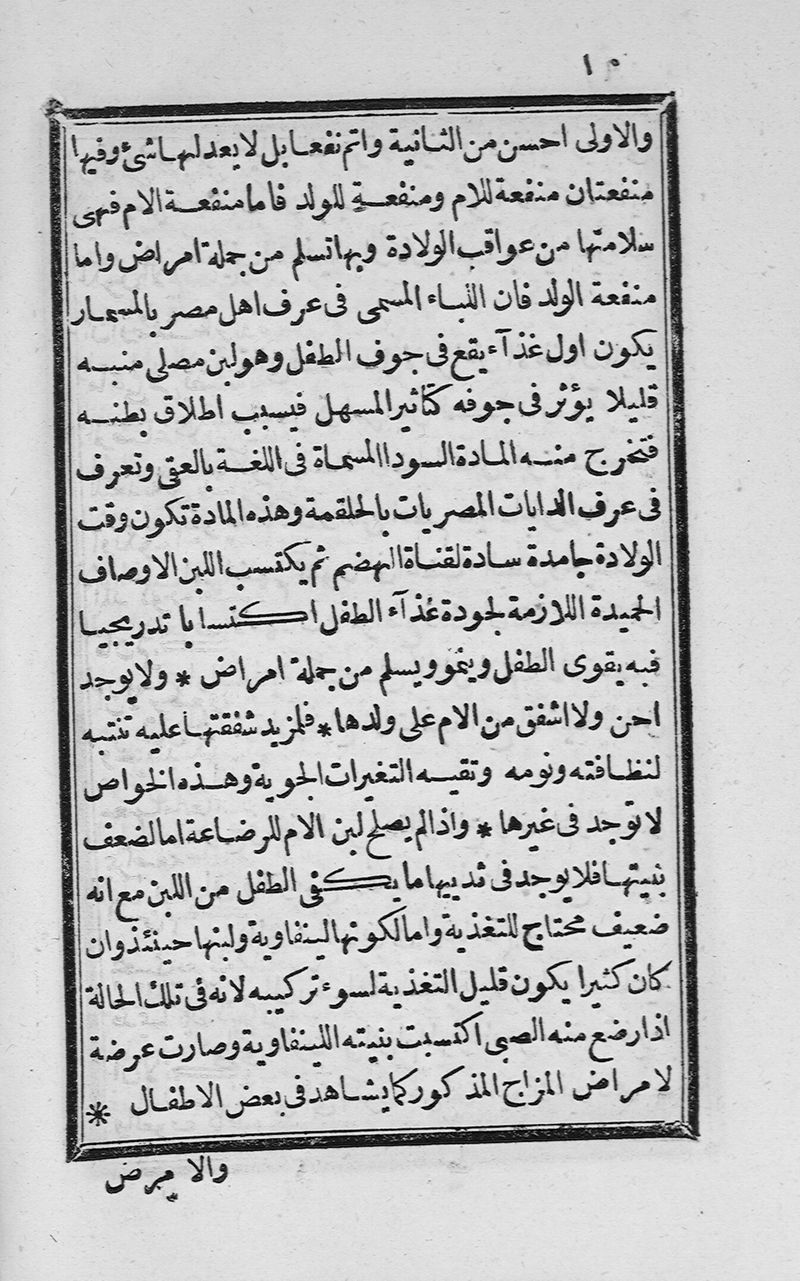 ١٠
والاولى احسن من الثانية واتم نفعا بل لا يعد لها شئ وفيها
منفعتان منفعة للام ومنفعة للولد فاما منفعة الام فهى
سلامتها من عواقب الولادة وبها تسلم من جملة امراض واما
منفعة الولد فان اللباء المسمى فى عرف اهل مصر بالمسمار
يكون اول غذآء يقع فى جوف الطفل وهو لبن مصلى منبه
قليلا يؤثر فى جوفه كتأثير المسهل فيسبب اطلاق بطنه
فتخرج منه المادة السودا المسماة فى اللغة بالعقى وتعرف
فى عرف الدايات المصريات بالحلقمة وهذه المادة تكون وقت
الولادة جامدة سادة لقناة الهضم ثم يكتسب اللبن الاوصاف
الحميدة اللازمة لجودة غذآء الطفل اكتسابا تدريجيا
فبه يقوى الطفل وينمو ويسلم من جملة امراض * ولا يوجد
احن ولا اشفق من الام على ولدها * فلمزيد شفقتها عليه تنتبه
لنظافته ونومه وتقيه التغيرات الجوية وهذه الخواص
لا توجد فى غيرها * واذا لم يصلح لبن الام للرضاعة اما لضعف
بنيتها فلا يوجد فى ثدييها ما يكفى الطفل من اللبن مع انه
ضعيف محتاج للتغذية واما لكونها لينفاوية ولبنها حينئذ وان
كان كثيرا يكون قليل التغذية لسوء تركيبه لانه فى تلك الحالة
اذا رضع منه الصبى اكتسبت بنيته اللينفاوية وصارت عرضة
لامراض المزاج المذكور كما يشاهد فى بعض الاطفال *
والا مرض